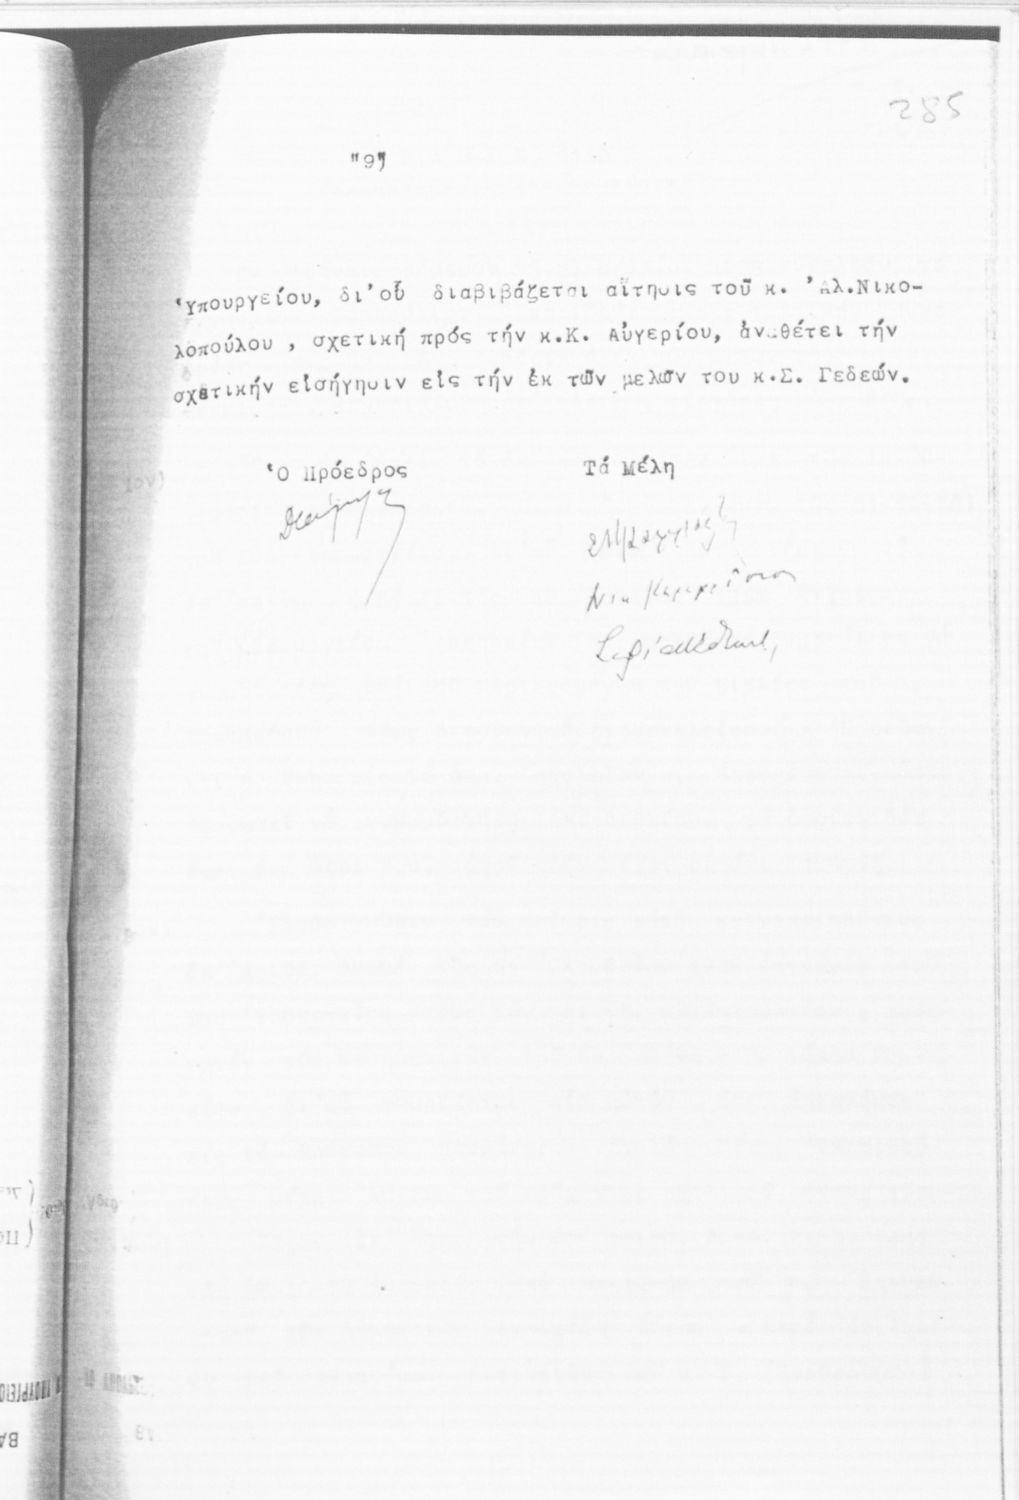 285
"9"
Ὑπουργείου, δι'οὗ διαβιβάζεται αἴτησις τοῦ κ. 'Αλ.Νικο-
λοπούλου , σχετική πρός τήν κ.Κ. Αὐγερίου, ἀναθέτει τήν
σχετικήν εἰσήγησιν εἰς τήν ἐκ τῶν μελῶν του κ.Σ. Γεδεών.
Ὁ Πρόεδρος
Τά Μέλη